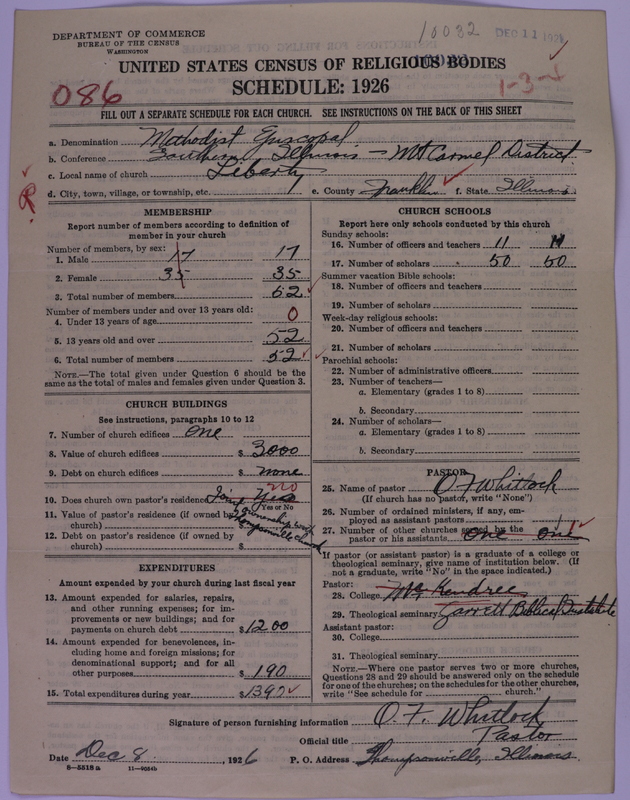 DEPARTMENT OF COMMERCE
BUREAU OF THE CENSUS
WASHINGTON
10032 DEC 11 1926
UNITED STATES CENSUS OF RELIGIOUS BODIES
SCHEDULE: 1926
086
1-3-4
FILL OUT A SEPARATE SCHEDULE FOR EACH CHURCH. SEE INSTRUCTIONS ON THE BACK OF THIS SHEET
a. Denomination Methodist Episcopal
b. Conference Southern Illinois — Mt Carmel District
c. Local name of church Liberty
d. City, town, village, or township, etc. e. County Franklin f. State Illinois
MEMBERSHIP
Report number of members according to definition of
member in your church
Number of members, by sex:
1. Male 17 17
2. Female 35 35
3. Total number of members 52
Number of members under and over 13 years old:
4. Under 13 years of age 0
5. 13 years old and over 52
6. Total number of members 52
NOTE.—The total given under Question 6 should be
same as the total of males and females given under Question 3.
CHURCH BUILDINGS
See instructions, paragraphs 10 to 12
7. Number of church edifices one
8. Value of church edifices $ 3000
9. Debt on church edifices $ none
10. Does church own pastor's residence? Joint Yes no
Yes or No
11. Value of pastor's residence (if owned by
church)
ownership with
Thompsonville church
12. Debt on pastor's residence (if owned by
church) $
EXPENDITURES
Amount expended by your church during last fiscal year
13. Amount expended for salaries, repairs,
and other running expenses; for im-
provements or new buildings; and for
payments on church debt $ 1200
14. Amount expended for benevolences, in-
cluding home and foreign missions; for
denominational support; and for all
other purposes $ 190
15. Total expenditures during year $ 1390
CHURCH SCHOOLS
Report here only schools conducted by this church
Sunday schools:
16. Number of officers and teachers 11 11
17. Number of scholars 50 50
Summer vacation Bible schools:
18. Number of officers and teachers
19. Number of scholars
Week-day religious schools:
20. Number of officers and teachers
21. Number of scholars
Parochial schools:
22. Number of administrative officers
23. Number of teachers—
a. Elementary (grades 1 to 8)
b. Secondary
24. Number of scholars—
a. Elementary (grades 1 to 8)
b. Secondary
PASTOR
25. Name of pastor O F Whitlock
(If church has no pastor, write "None")
26. Number of ordained ministers, if any, em-
ployed as assistant pastors
27. Number of other churches served by the
pastor or his assistants one one
If pastor (or assistant pastor) is a graduate of a college or
theological seminary, give name of institution below. (If
not a graduate, write "No" in the space indicated.)
Pastor:
28. College McKendree
29. Theological seminary Garrett Biblical Institute
Assistant pastor:
30. College
31. Theological seminary
NOTE.—Where one pastor serves two or more churches,
Questions 28 and 29 should be answered only on the schedule
for one of the churches; on the schedules for the other churches,
write "See schedule for church."
Signature of person furnishing information O. F. Whitlock
Official title Pastor
Date Dec 8, 1926 P. O. Address Thompsonville, Illinois
8—5518a 11—9054b